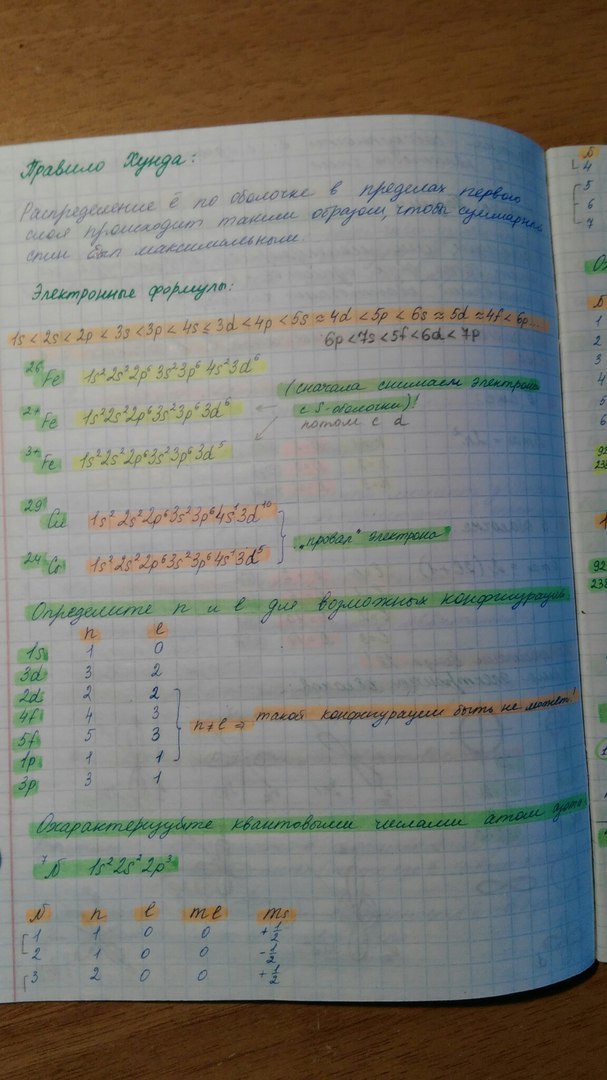 Правило Хунда:
Распределение ē по оболочке в пределах первого
слоя происходит таким образом, чтобы суммарный
спин был максимальным.
Электронные формулы:
1s < 2s < 2p < 3s < 3p < 4s ≤ 3d < 4p < 5s ≈ 4d < 5p < 6s ≈ 5d ≈ 4f < 6p...
6p < 7s < 5f < 6d < 7p
²⁶Fe 1s²2s²2p⁶3s²3p⁶4s²3d⁶
²⁺Fe 1s²2s²2p⁶3s²3p⁶3d⁶ ← (сначала снимаем электроны
с s-оболочки)!
потом с d
³⁺Fe 1s²2s²2p⁶3s²3p⁶3d⁵
²⁹Cu 1s²2s²2p⁶3s²3p⁶4s¹3d¹⁰
"провал" электрона
²⁴Cr 1s²2s²2p⁶3s²3p⁶4s¹3d⁵
Определите n и l для возможных конфигураций
n l
1s 1 0
3d 3 2
2d 2 2
4f 4 3
n≠l ⇒ такой конфигурации быть не может!
5f 5 3
1p 1 1
3p 3 1
Охарактеризуйте квантовыми числами атом азота
⁷N 1s²2s²2p³
N n l ml ms
1 1 0 0 +½
2 1 0 0 -½
3 2 0 0 +½
N
4
5
6
7
1
2
3
4
5
6
92